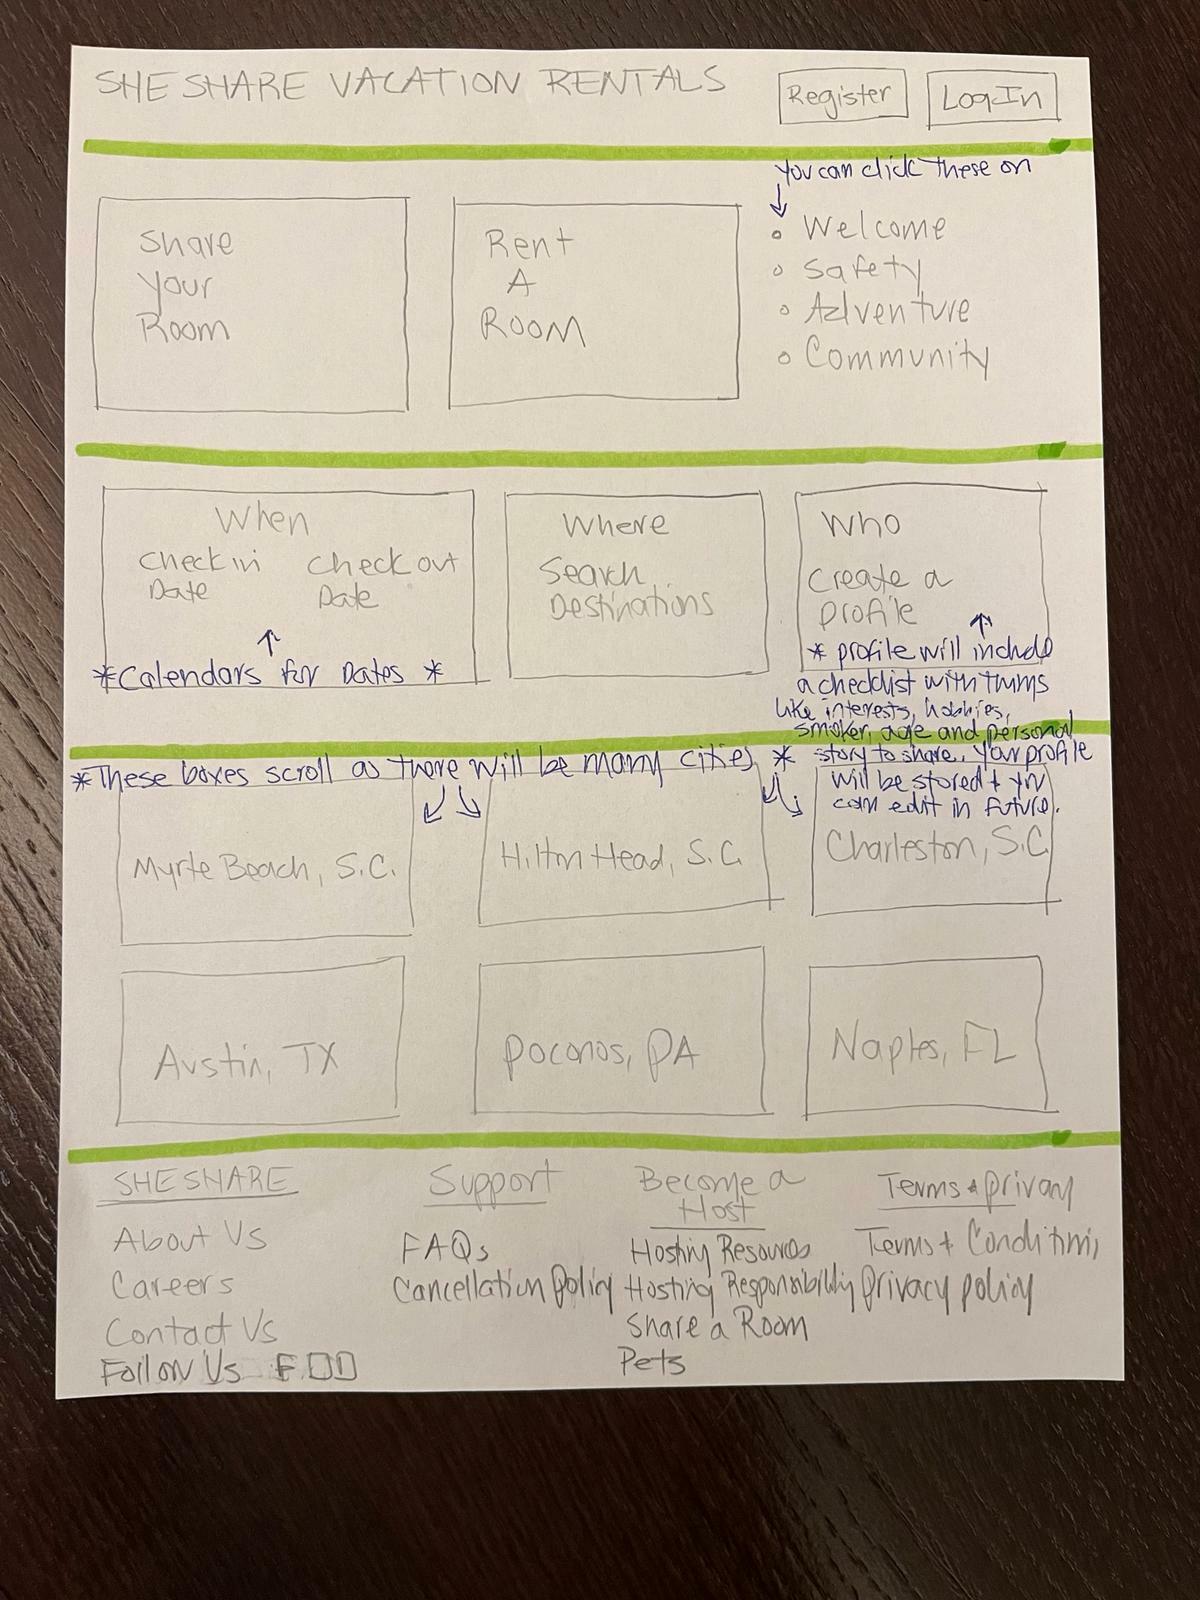 SHE SHARE VACATION RENTALS
Register
LogIn
You can click these on
Share
Your
Room
Rent
A
ROOM
Welcome
Safety
Adventure
Community
When
Check in
Date
Check out
Date
*Calendars for Dates *
Where
Search
Destinations
Who
Create a
profile
* profile will include
a checklist with
like interests, hobbies,
smoker, age and personal
story to share. Your profile
will be stored +
can edit in future.
*These boxes scroll as there will be many cities *
Myrtle Beach, S.C.
Hilton Head, S.C.
Charleston, S.C
Austin, TX
Poconos, PA
Naples, FL
SHE SHARE
About Us
Careers
Contact Us
Follow Us F
Support
FAQs
Cancellation Policy
Become a
Host
Hosting Resources
Hosting Responsibility
Share a Room
Pets
Terms + privacy
Terms + Conditions
privacy policy